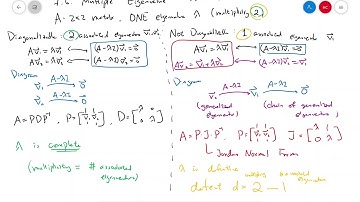 7.6. Multiple Eigenvalue
A - 2x2 matrix, ONE eigenvalue λ (multiplicity 2)
Diagonalizable : 2 associated eigenvectors v⃗₁, v⃗₂
Av⃗₁ = λv⃗₁ ⟷ (A-λI)v⃗₁ = 0⃗
Av⃗₂ = λv⃗₂ ⟷ (A-λI)v⃗₂ = 0⃗
Diagram
v⃗₁ —A-λI→ 0⃗
v⃗₂ —A-λI→ 0⃗
A = PDP⁻¹, P = [v⃗₁ v⃗₂], D = [λ 0; 0 λ]
λ is complete
(multiplicity = # associated eigenvectors)
Not Diagonalizable : 1 associated eigenvector v⃗₁
Av⃗₁ = λv⃗₁ ⟷ (A-λI)v⃗₁ = 0⃗
Av⃗₂ = v⃗₁ + λv⃗₂ ⟷ (A-λI)v⃗₂ = v⃗₁
Diagram
v⃗₂ —A-λI→ v⃗₁ —A-λI→ 0⃗
(generalized eigenvector)
(chain of generalized eigenvectors)
A = P·J·P⁻¹ P = [v⃗₁ v⃗₂] J = [λ 1; 0 λ]
Jordan Normal Form
λ is defective
multiplicity
associated eigenvectors
defect d = 2 - 1